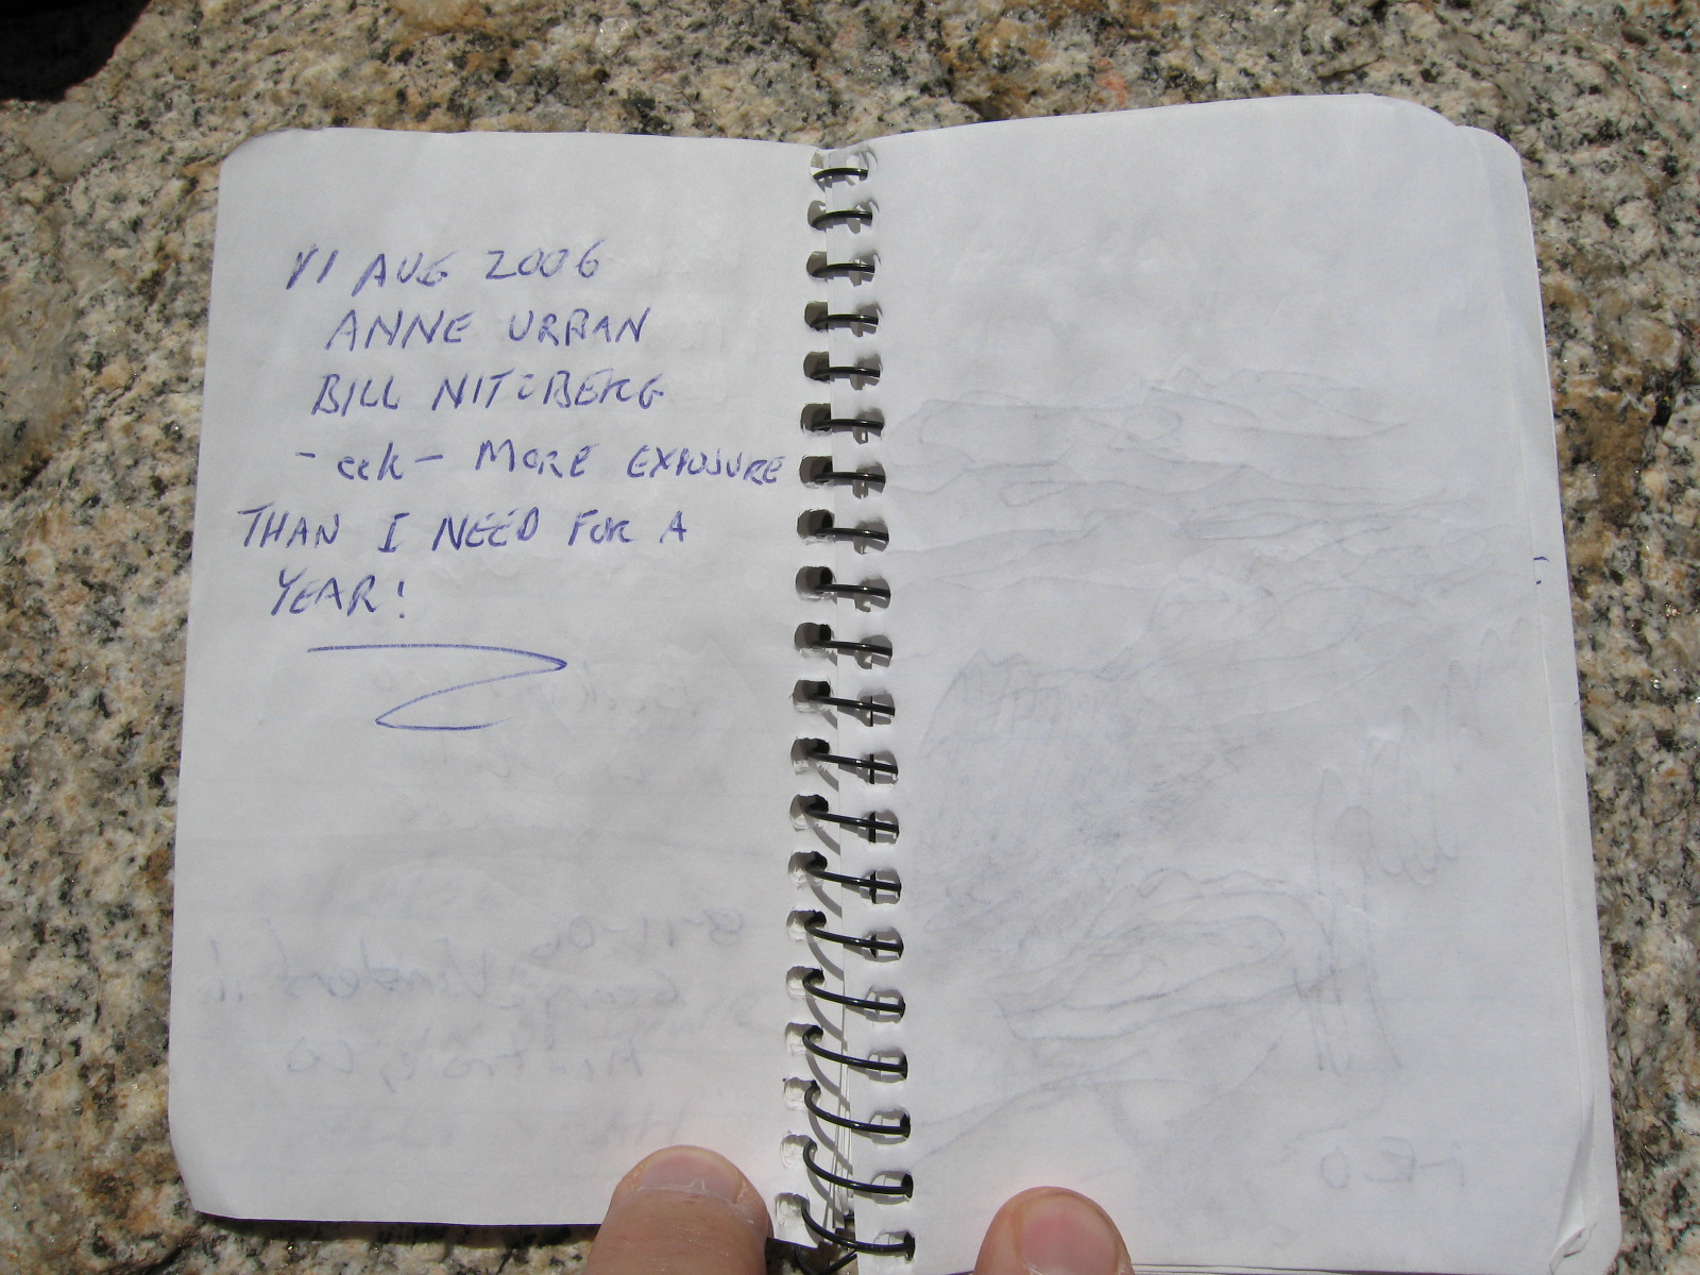 11 AUG 2006
ANNE URBAN
BILL NITZBERG
- eek - MORE EXPOSURE
THAN I NEED FOR A
YEAR!